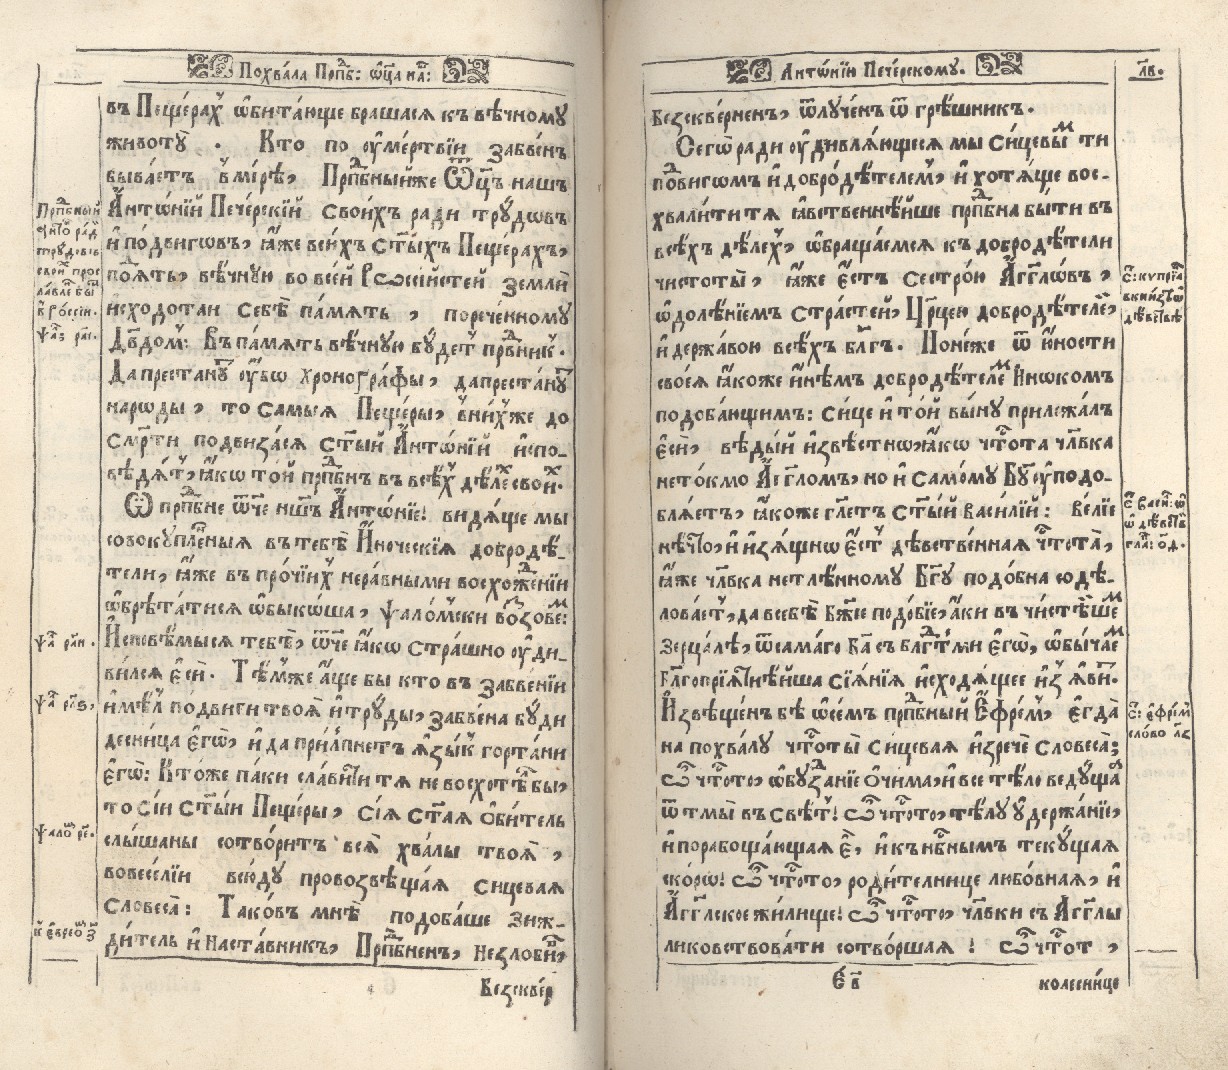 Похва́ла Прпⷣб: ѿца на́:
въ Пеще́рахъ ѡ҆бита́юще брашася къ вѣ́чному
животу̀ . Кто по оу҆ме́ртвїи забве́нъ
быва́етъ в̾ мі́рѣ, Прпⷣбныйже Ѿцъ нашъ
А҆нто́нїй Пече́рскїй свои́хъ ради трꙋдо́въ
и҆ по́двигѡвъ, ꙗ҆́же в си́хъ ст҃ы́хъ Пеще́рахъ,
под̾я́тъ, вѣ́чную во все́й Рѡссі́йстей земли̂
исходотаи себѣ̀ па́мять, порече́нному
Дв҃дом: Въ па́мять вѣ́чную бу́детъ првⷣникъ.
Да престану́тъ оу҆́бѡ хроногра́фы, да преста́нутъ
наро́ды, то самыя Пеще́ры, в̾ни́хже до
сме́рти подвиза́ся ст҃ы́й А҆нтѡ́нїй и҆спо-
вѣ́дятъ, ꙗ҆́кѡ то́й прпⷣбнъ въ всѣ́хъ дѣ́лехъ свои́хъ.
Ѽ прпⷣбне ѿ́че на́шъ А҆нтѡ́нїе! видя́ще мы
совокупле́нныя въ тебѣ̀ И҆́ноческїя добродѣ́-
тели, ꙗ҆́же въ про́чїихъ нера́вными восхожде́нїи
ѡ҆брѣта́тися ѡ҆быко́ша, ѱало́мски возѡве́мъ:
И҆сповѣ́мыся тебѣ̀, ѿ́че ꙗ҆́кѡ стра́шно оу҆ди-
ви́лся є҆сѝ. Тѣ́мже а҆́ще бы кто въ забве́нїи
и҆мѣ́лъ подвиги твоя̀ и҆ трꙋды̀, забве́на бу́ди
десни́ца є҆гѡ̀, и҆ да прильпнетъ ꙗ҆зы́къ горта́ни
є҆гѡ̀: Кто́же па́ки сла́вити тя не восхотѣ́лъ бы,
то сі́и ст҃ы́и Пеще́ры, сія̀ ст҃а́я Ѻ҆би́тель
слы́шаны сотвори́тъ вся̀ хвалы̀ твоя̀,
во весе́лїи всю́ду провозвѣща́я сицевая
словеса̀: Тако́въ мнѣ̀ подоба́ше зиж-
ди́тель и҆ наста́вникъ, Прпⷣбненъ, незло́бивъ,
Безскве́р
Прпⷣбный
тру́довъ
ѱа́л рл҃и.
А҆нтѡ́нїю Пече́рскому.
л҃в.
Безскве́рненъ, ѿлуче́нъ ѿ грѣ́шникъ.
Сегѡ̀ ра́ди оу҆дивля́ющеся мы си́цевымъ ти
по́двигѡмъ и҆ добродѣ́телемъ, и҆ хотя́ще вос-
хвали́ти тя ꙗ҆́вственнѣ́йше прпⷣбна бы́ти въ
всѣ́хъ дѣ́лехъ, ѡ҆браща́емся къ добродѣ́тели
чистоты̀, ꙗ҆́же є҆́стъ сестро́ю А҆́гг҃лѡвъ,
ѡ҆долѣ́нїемъ страсте́й, Цр҃цею добродѣ́телемъ,
и҆ держа́вою всѣ́хъ бл҃гъ. Поне́же ѿ ю҆́ности
своея̀ ꙗ҆́коже и҆́нѣмъ добродѣ́телемъ И҆нокомъ
подоба́ющимъ: си́це и҆ то́й вы́ну прилежа́лъ
є҆сѝ, вѣ́дый и҆звѣ́стнѡ, ꙗ҆́кѡ чⷭ҇тота̀ чл҃вка
нето́кмо А҆́гг҃ломъ, но и҆ самому́ Бг҃у оу҆подо-
бля́етъ, ꙗ҆́коже гл҃етъ ст҃ы́й васи́лїй: ве́лїе
нѣ́что, и҆ и҆зя́щнѡ є҆́сть дѣ́вственная чⷭ҇тота̀,
ꙗ҆́же чл҃вка нетлѣ́нному Бг҃у подо́бна содѣ́-
ловаетъ, да в себѣ̀ Бж҃їе подо́бїе, а҆́ки въ чистѣ́йшемъ
зерца́лѣ, ѿ самаго Бг҃а съ бл҃года́тми є҆гѡ̀, ѡ҆быча́емъ
Бл҃гопрїя́тнѣйша сїя́нїя и҆сходя́щее и҆з̾яви.
И҆звѣще́нъ бѣ ѡ҆ се́мъ прпⷣбный Є҆фре́мъ, є҆гда̀
на похва́лу чⷭ҇тоты̀ си́цевая и҆зречѐ словеса̀:
Ѽ чⷭ҇тото, ѡ҆бузда́нїе ѻ҆чи́ма, и҆ все тѣ́ло веду́щая
ѿ тмы̀ въ свѣ́тъ! Ѽ чⷭ҇тото, тѣ́лу оу҆держа́нїе,
и҆ порабоща́ющая є҆̀, и҆ къ нб҃нымъ теку́щая
ско́рѡ! Ѽ чⷭ҇тото, роди́телнице любо́вная, и҆
А҆́гг҃лское жили́ще! Ѽ чⷭ҇тото, чл҃вки съ А҆́гг҃лы
ликовствова́ти сотво́ршая! Ѽ чⷭ҇тот,
Є҃ в҃
колесни́це